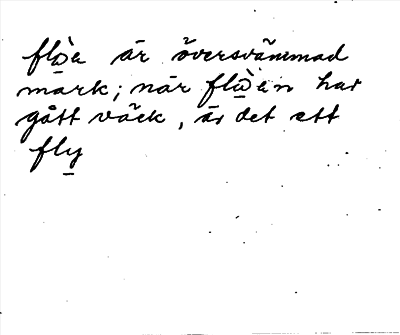 flȯ̠̀a är översvämmad
mark; när flȯ̠̀en har
gått väck, är det ett
fly̠